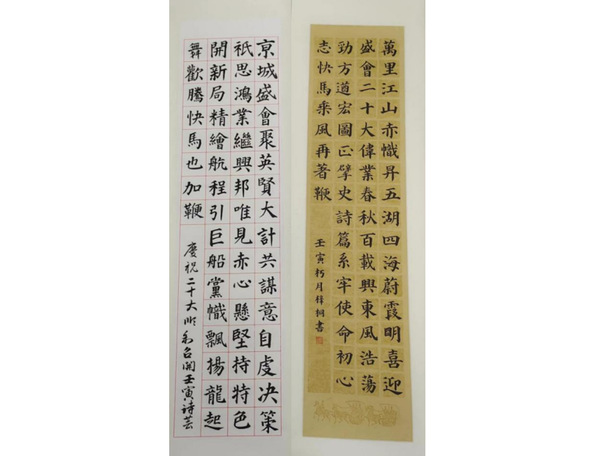 萬里江山赤幟昇五湖四海蔚霞明喜迎
盛會二十大偉業春秋百載興東風浩蕩
勁方道宏圖正擘史詩篇系牢使命初心
志快馬乘風再著鞭
壬寅月桐書
京城盛會聚英賢大計共謀意自虔决策
祇思鴻業繼興邦唯見赤心懸堅持特色
開新局精繪航程引巨船黨幟飄揚龍起
舞歡騰快馬也加鞭
慶祝二十大順利召開壬寅詩芸